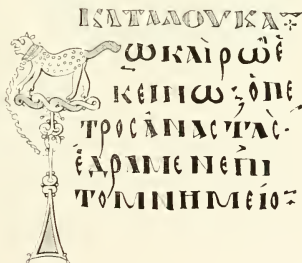 ΚΑΤΑ ΛΟΥΚΑ
Τῶ ΚΑΙρῶ Ἐ
ΚΕΙΝω· Ὁ ΠΕ
ΤΡΟC ἈΝΑCΤΑC·
ἜΔΡΑΜΕΝ ἘΠΙ
ΤΟ ΜΝΗΜΕΙΟ